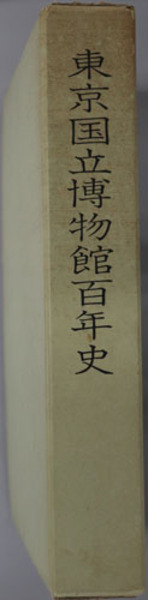 東京国立博物館百年史